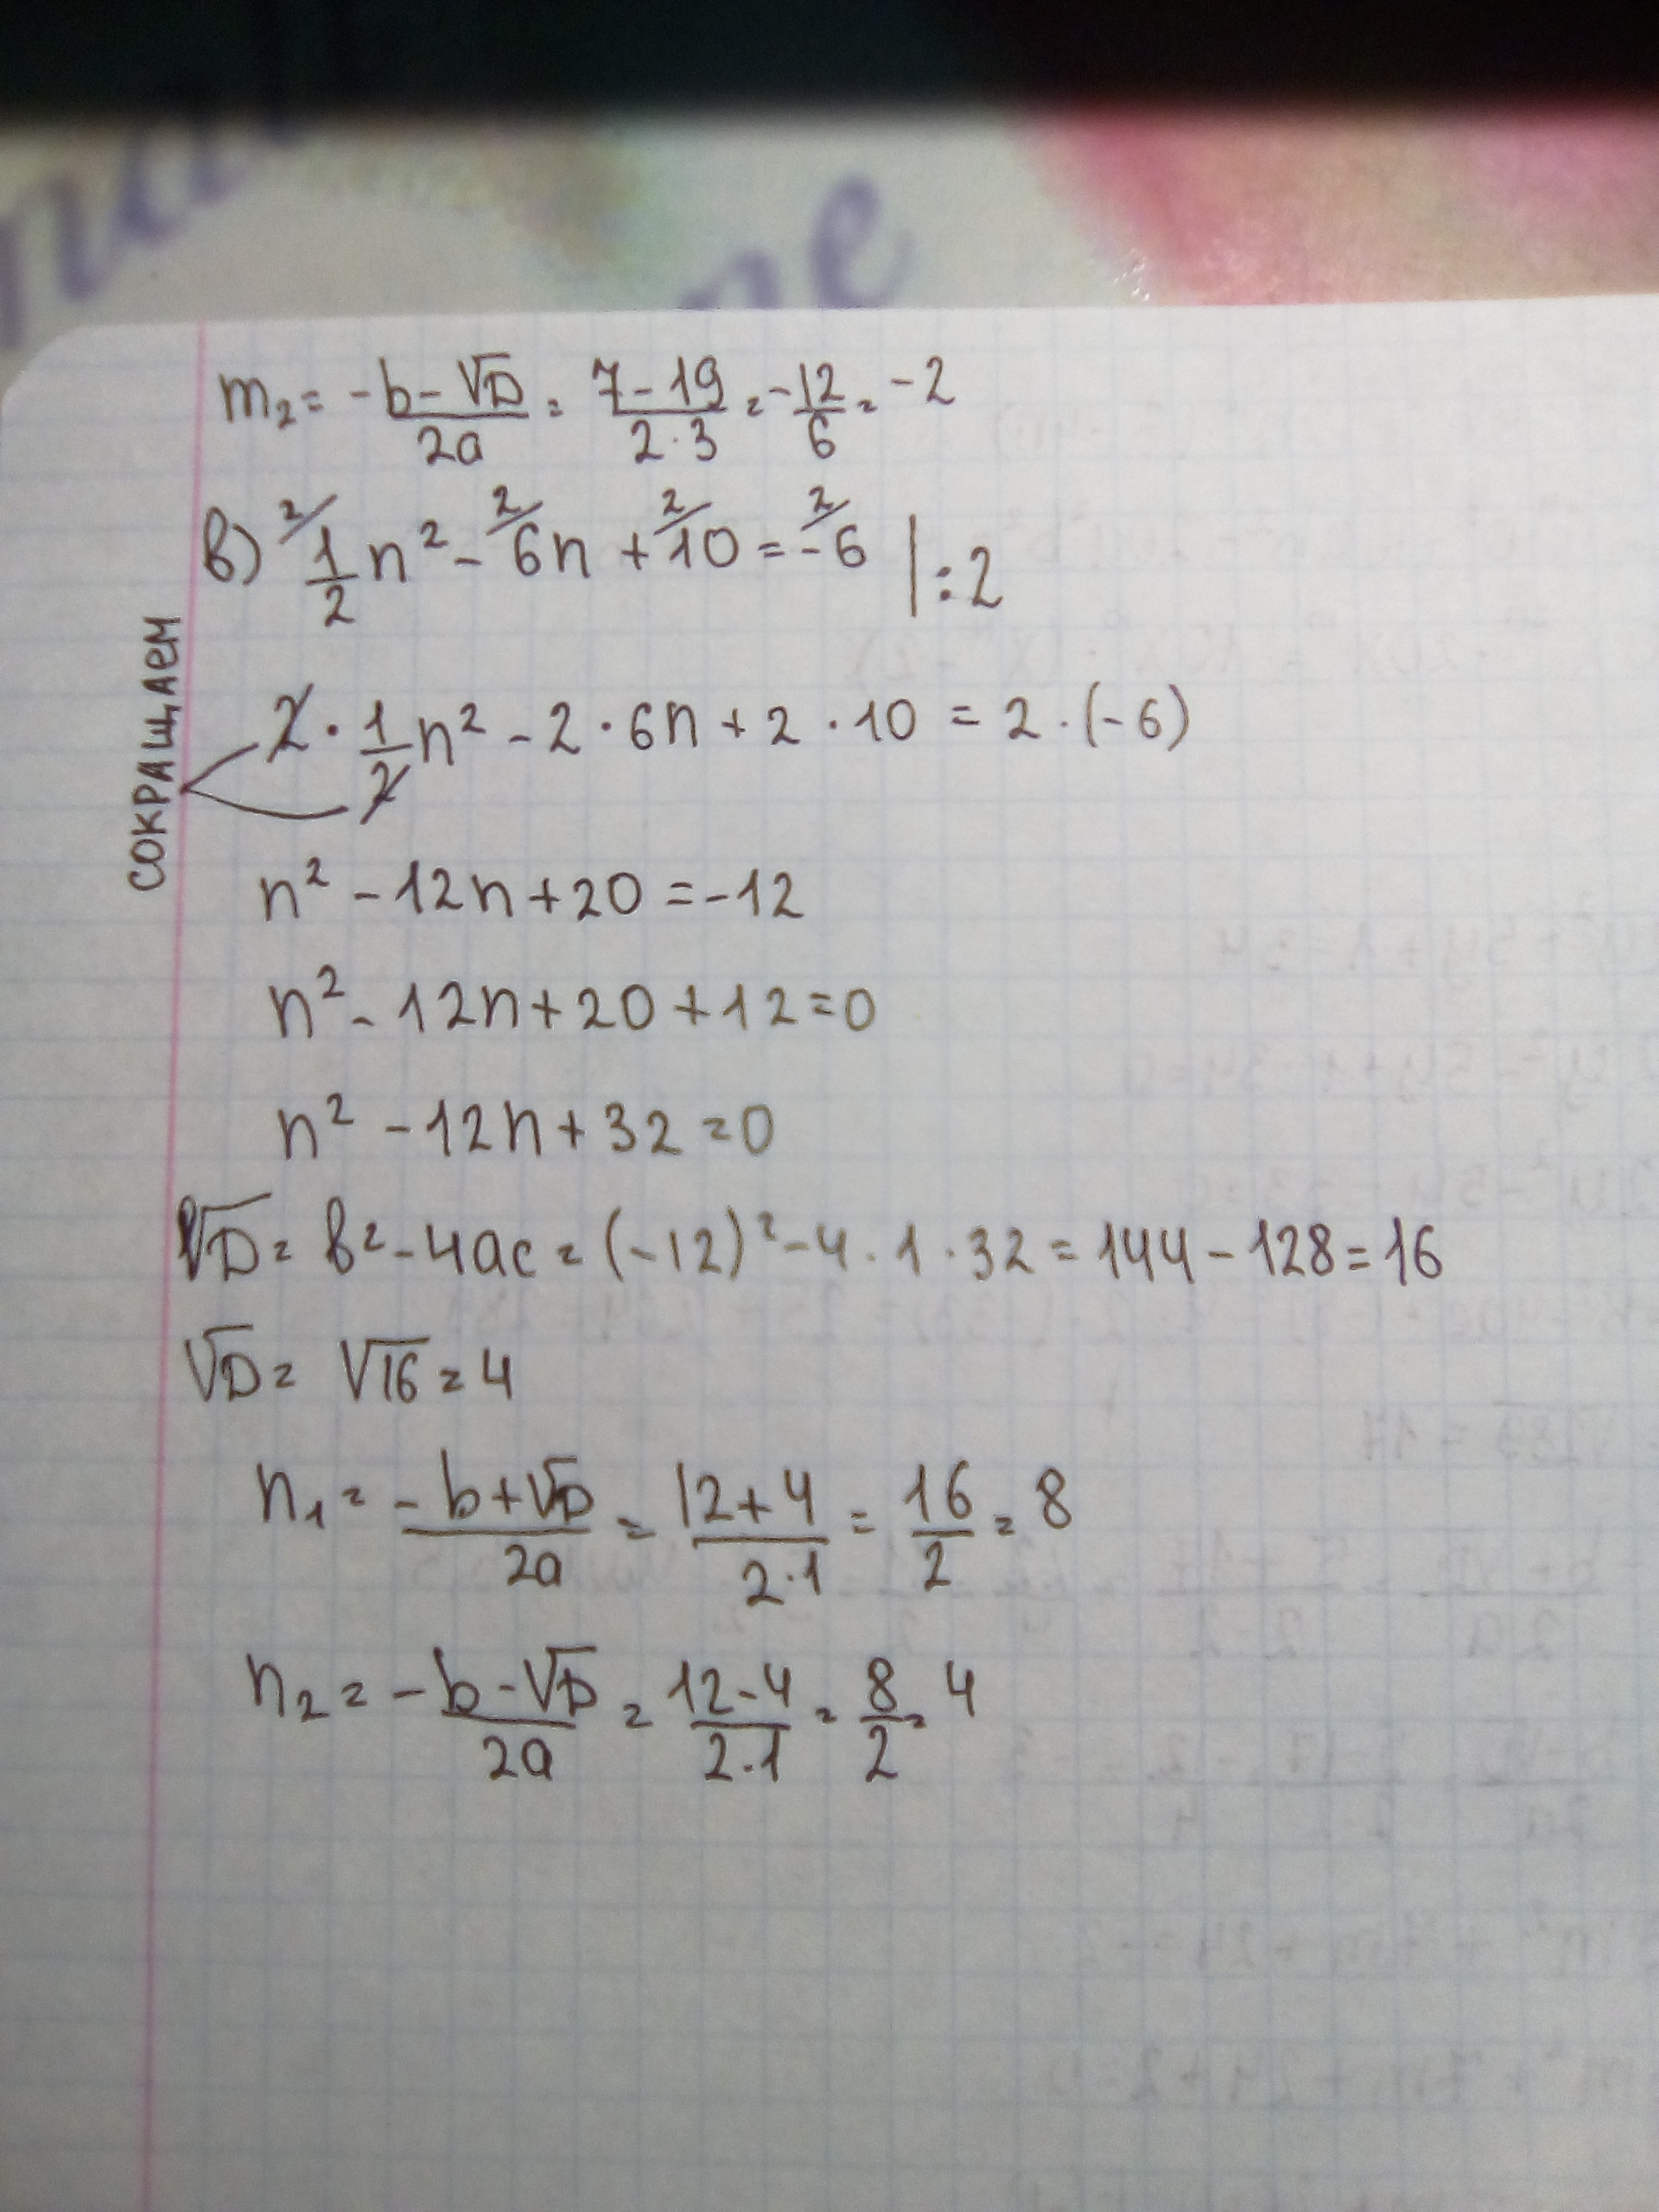 m₂ = -b-√D/2a = 7-19/2·3 = -12/6 = -2
в) ²/1/2 n² - ²/6n + ²/10 = ²/-6 |:2
сокращаем
2 · 1/2 n² - 2 · 6n + 2 · 10 = 2 · (-6)
n² - 12n + 20 = -12
n² - 12n + 20 + 12 = 0
n² - 12n + 32 = 0
√D = b² - 4ac = (-12)² - 4 · 1 · 32 = 144 - 128 = 16
√D = √16 = 4
n₁ = -b+√D/2a = 12+4/2·1 = 16/2 = 8
n₂ = -b-√D/2a = 12-4/2·1 = 8/2 = 4